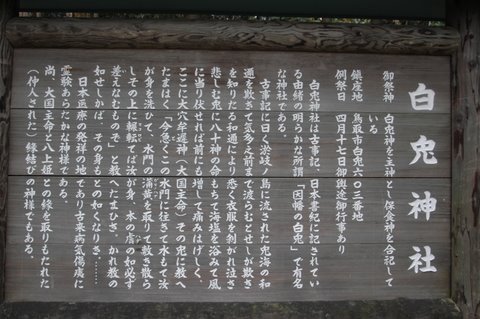 白兎神社
御祭神 白兎神を主神とし保食神を合祀して
いる
鎮座地 鳥取市白兎六〇三番地
例祭日 四月十七日御輿途御行事あり
白兎神社は古事記、日本書紀に記されてい
る由緒の明らかな所謂「因幡の白兎」で有名
な神社である。
古事記に曰く淤岐ノ島に流された兎海の和
通を欺きて気多ノ前まで渡らむとせしが欺き
を知りたる和通により悉く衣服を剥がれ泣き
悲しむ兎に八十神の命もちて海塩を浴みて風
に当り伏せれば前にも増して痛みはげしく、
ここに大穴牟遅神(大国主命)その兎に教へ
たまはく「今急くこの水門に往きて水もて汝
が身を洗ひて、水門の蒲黄を取りて敷き散ら
しその上に輾転てば汝が身、本の膚の如必ず
差えなむものぞ」と教へたまひき、かれ教の
如せしかば、その身もとの如くなりき、……
日本医療の発祥の地であり古来病気傷痍に
霊験あらたかな神様である。
尚、大国主命と八上姫との縁を取りもたれた
(仲人された)縁結びの神様でもある。